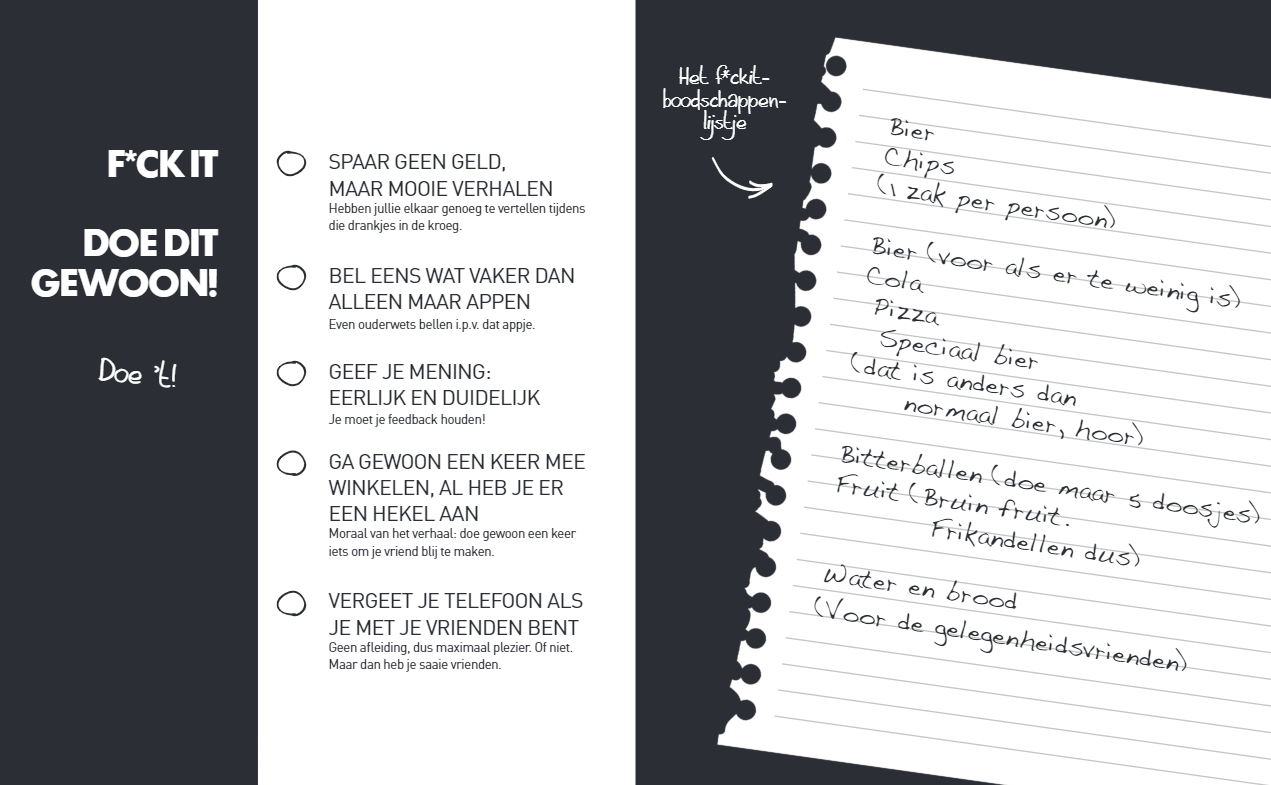 F*CK IT
DOE DIT
GEWOON!
Doe 't!
SPAAR GEEN GELD,
MAAR MOOIE VERHALEN
Hebben jullie elkaar genoeg te vertellen tijdens
die drankjes in de kroeg.
BEL EENS WAT VAKER DAN
ALLEEN MAAR APPEN
Even ouderwets bellen i.p.v. dat appje.
GEEF JE MENING:
EERLIJK EN DUIDELIJK
Je moet je feedback houden!
GA GEWOON EEN KEER MEE
WINKELEN, AL HEB JE ER
EEN HEKEL AAN
Moraal van het verhaal: doe gewoon een keer
iets om je vriend blij te maken.
VERGEET JE TELEFOON ALS
JE MET JE VRIENDEN BENT
Geen afleiding, dus maximaal plezier. Of niet.
Maar dan heb je saaie vrienden.
Het f*ckit-
boodschappen-
lijstje
Bier
Chips
(1 zak per persoon)
Bier (voor als er te weinig is)
Cola
Pizza
Speciaal bier
(dat is anders dan
normaal bier, hoor)
Bitterballen (doe maar 5 doosjes)
Fruit (Bruin fruit.
Frikandellen dus)
Water en brood
(Voor de gelegenheidsvrienden)